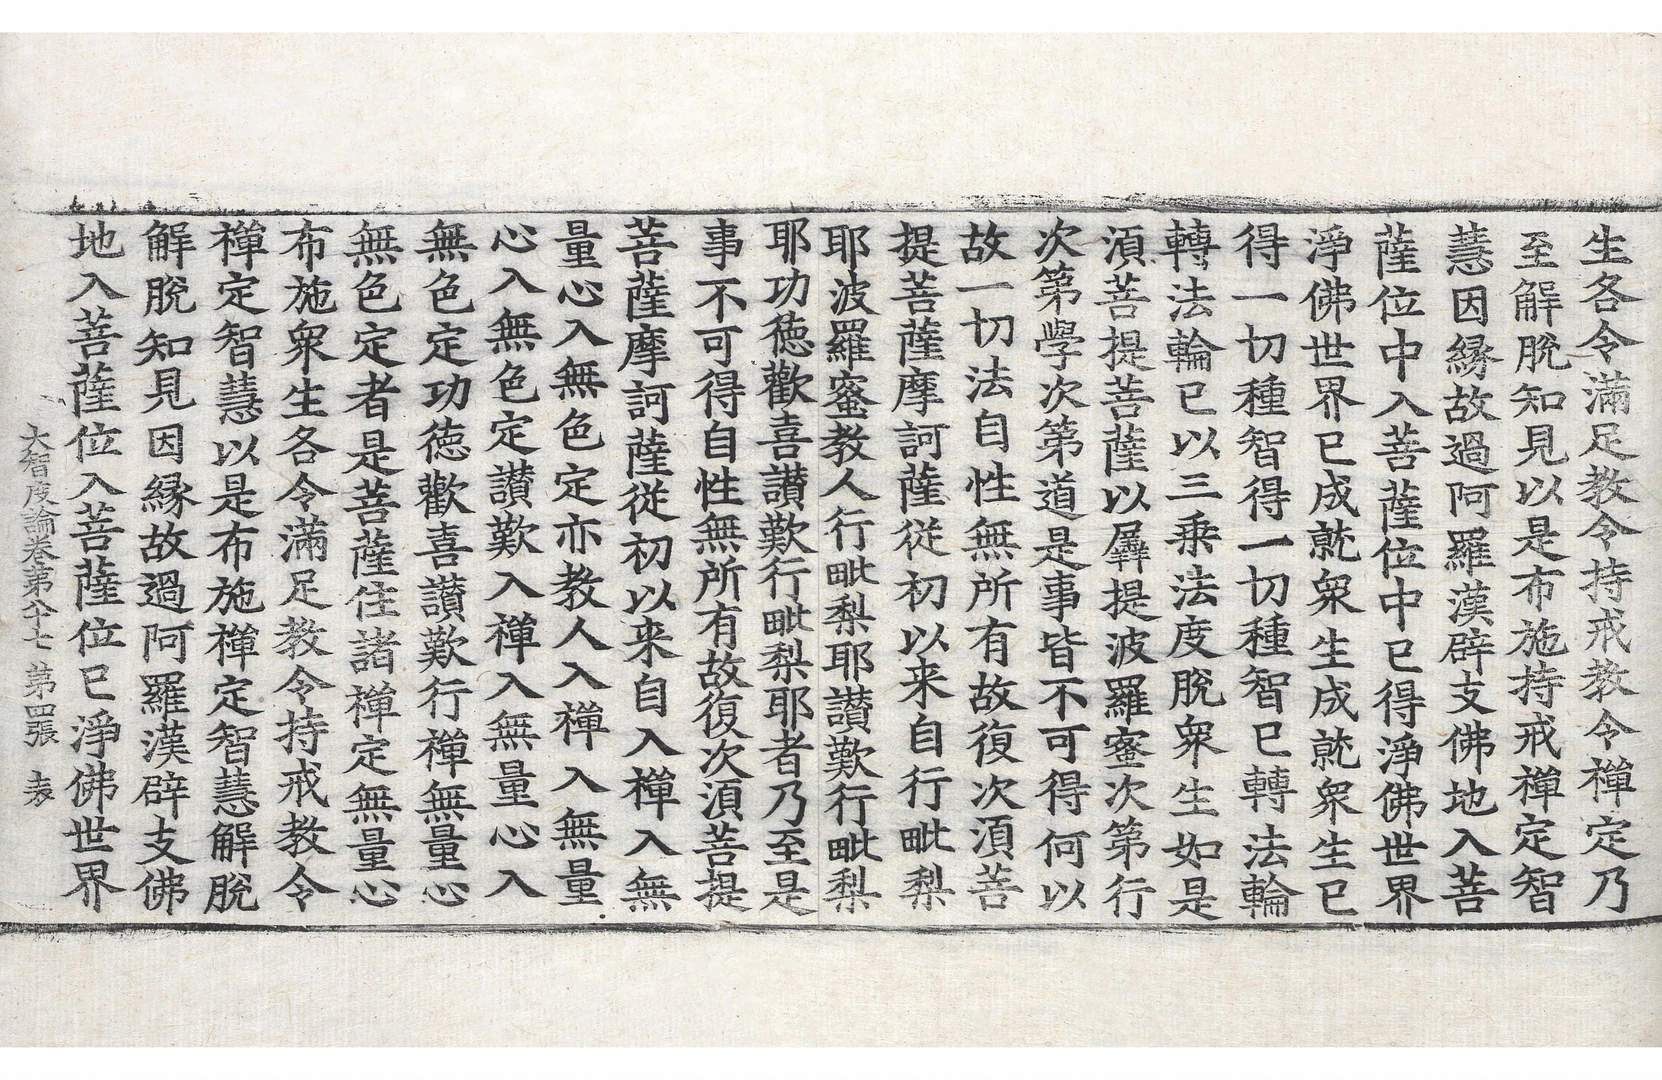 生各令滿足教令持戒教令禪定乃
至解脫知見以是布施持戒禪定智
慧因緣故過阿羅漢辟支佛地入菩
薩位中入菩薩位中已得淨佛世界
淨佛世界已成就衆生成就衆生已
得一切種智得一切種智已轉法輪
轉法輪已以三乘法度脫衆生如是
湏菩提菩薩以羼提波羅蜜次第行
次第學次第道是事皆不可得何以
故一切法自性無所有故復次湏菩
提菩薩摩訶薩從初以来自行毗梨
耶波羅蜜教人行毗梨耶讃歎行毗梨
耶功德歡喜讃歎行毗梨耶者乃至是
事不可得自性無所有故復次湏菩提
菩薩摩訶薩從初以来自入禪入無
量心入無色定亦教人入禪入無量
心入無色定讃歎入禪入無量心入
無色定功德歡喜讃歎行禪無量心
無色定者是菩薩住諸禪定無量心
布施衆生各令滿足教令持戒教令
禪定智慧以是布施禪定智慧解脫
解脫知見因緣故過阿羅漢辟支佛
地入菩薩位入菩薩位已淨佛世界
大智度論卷第八十七 第四張 表